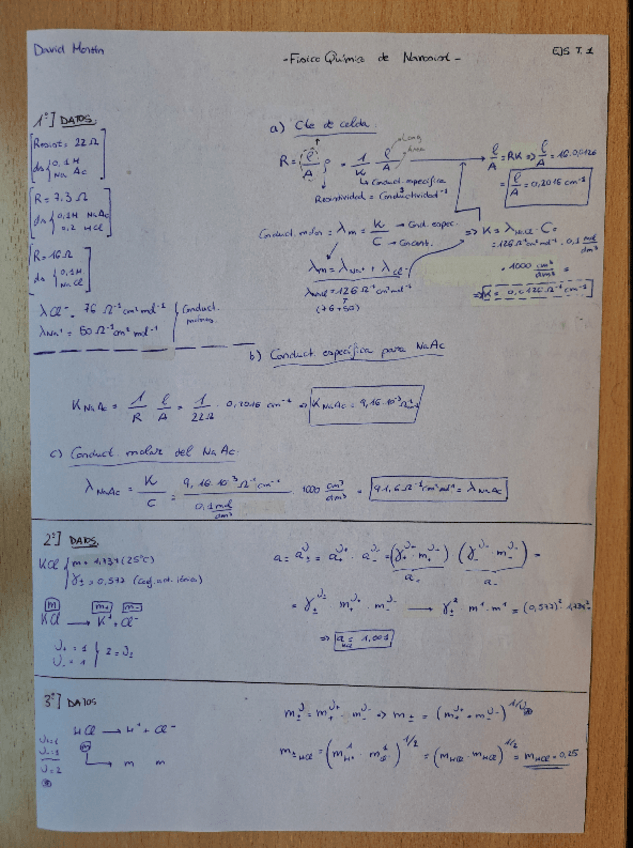 David Martín
- Físico Química de Nanosist -
EJS T. 1
1º] DATOS.
Resist = 22 Ω
ds { 0,1M Na Ac
R = 7.3 Ω
ds { 0,1M NaAc 0,2 HCl
R = 16 Ω
ds { 0,1M NaCl
λCl⁻ = 76 Ω⁻¹cm²mol⁻¹
λNa⁺ = 50 Ω⁻¹cm²mol⁻¹
Conduct.
a) Cte de celda
R = (l/A) ρ = 1/K l/A
Long
Area
Conduct. específica
Resistividad = Conductividad⁻¹
l/A = RK ⇒ l/A = 16 · 0,0126
= l/A = 0,2016 cm⁻¹
Conduct. molar = λm = K/C → Cond. espec. → Concent.
⇒ K = λNaCl · C =
= 126 Ω⁻¹cm²mol⁻¹ · 0,1 mol/dm³
λm = λNa⁺ + λCl⁻
· 1000 cm³/dm³ =
λNaCl = 126 Ω⁻¹cm²mol⁻¹
(76+50)
⇒ K = 0,0126 Ω⁻¹cm⁻¹
b) Conduct. específica para NaAc
K NaAc = 1/R l/A = 1/22Ω · 0,2016 cm⁻¹ ⇒ K NaAc = 9,16·10⁻³ Ω⁻¹
c) Conduct. molar del NaAc.
λ NaAc = K/C = 9,16·10⁻³ Ω⁻¹cm⁻¹ / 0,1 mol/dm³ · 1000 cm³/dm³ = 91,6 Ω⁻¹cm²mol⁻¹ = λ NaAc
2º] DATOS.
KCl { m = 1,734 (25ºC)
γ± = 0,577 (Coef. act. iónica)
m m+ m-
KCl → K⁺ + Cl⁻
ν+ = 1
ν- = 1 } 2 = ν±
a = a±^ν = a+^ν+ · a-^ν- = (γ+^ν+ · m+^ν+) (γ-^ν- · m-^ν-) =
a+ a-
= γ±^ν± m+^ν+ · m-^ν- → γ±² · m¹ · m¹ = (0,577)² · 1,734²
⇒ a KCl = 1,001
3º] DATOS
HCl → H⁺ + Cl⁻
m
m m
ν+=1
ν-=1
ν=2
m±^ν = m+^ν+ · m-^ν- ⇒ m± = (m+^ν+ · m-^ν-)^1/ν
m±HCl = (m¹H⁺ · m¹Cl⁻)^1/2 = (mHCl · mHCl)^1/2 = mHCl = 0,25